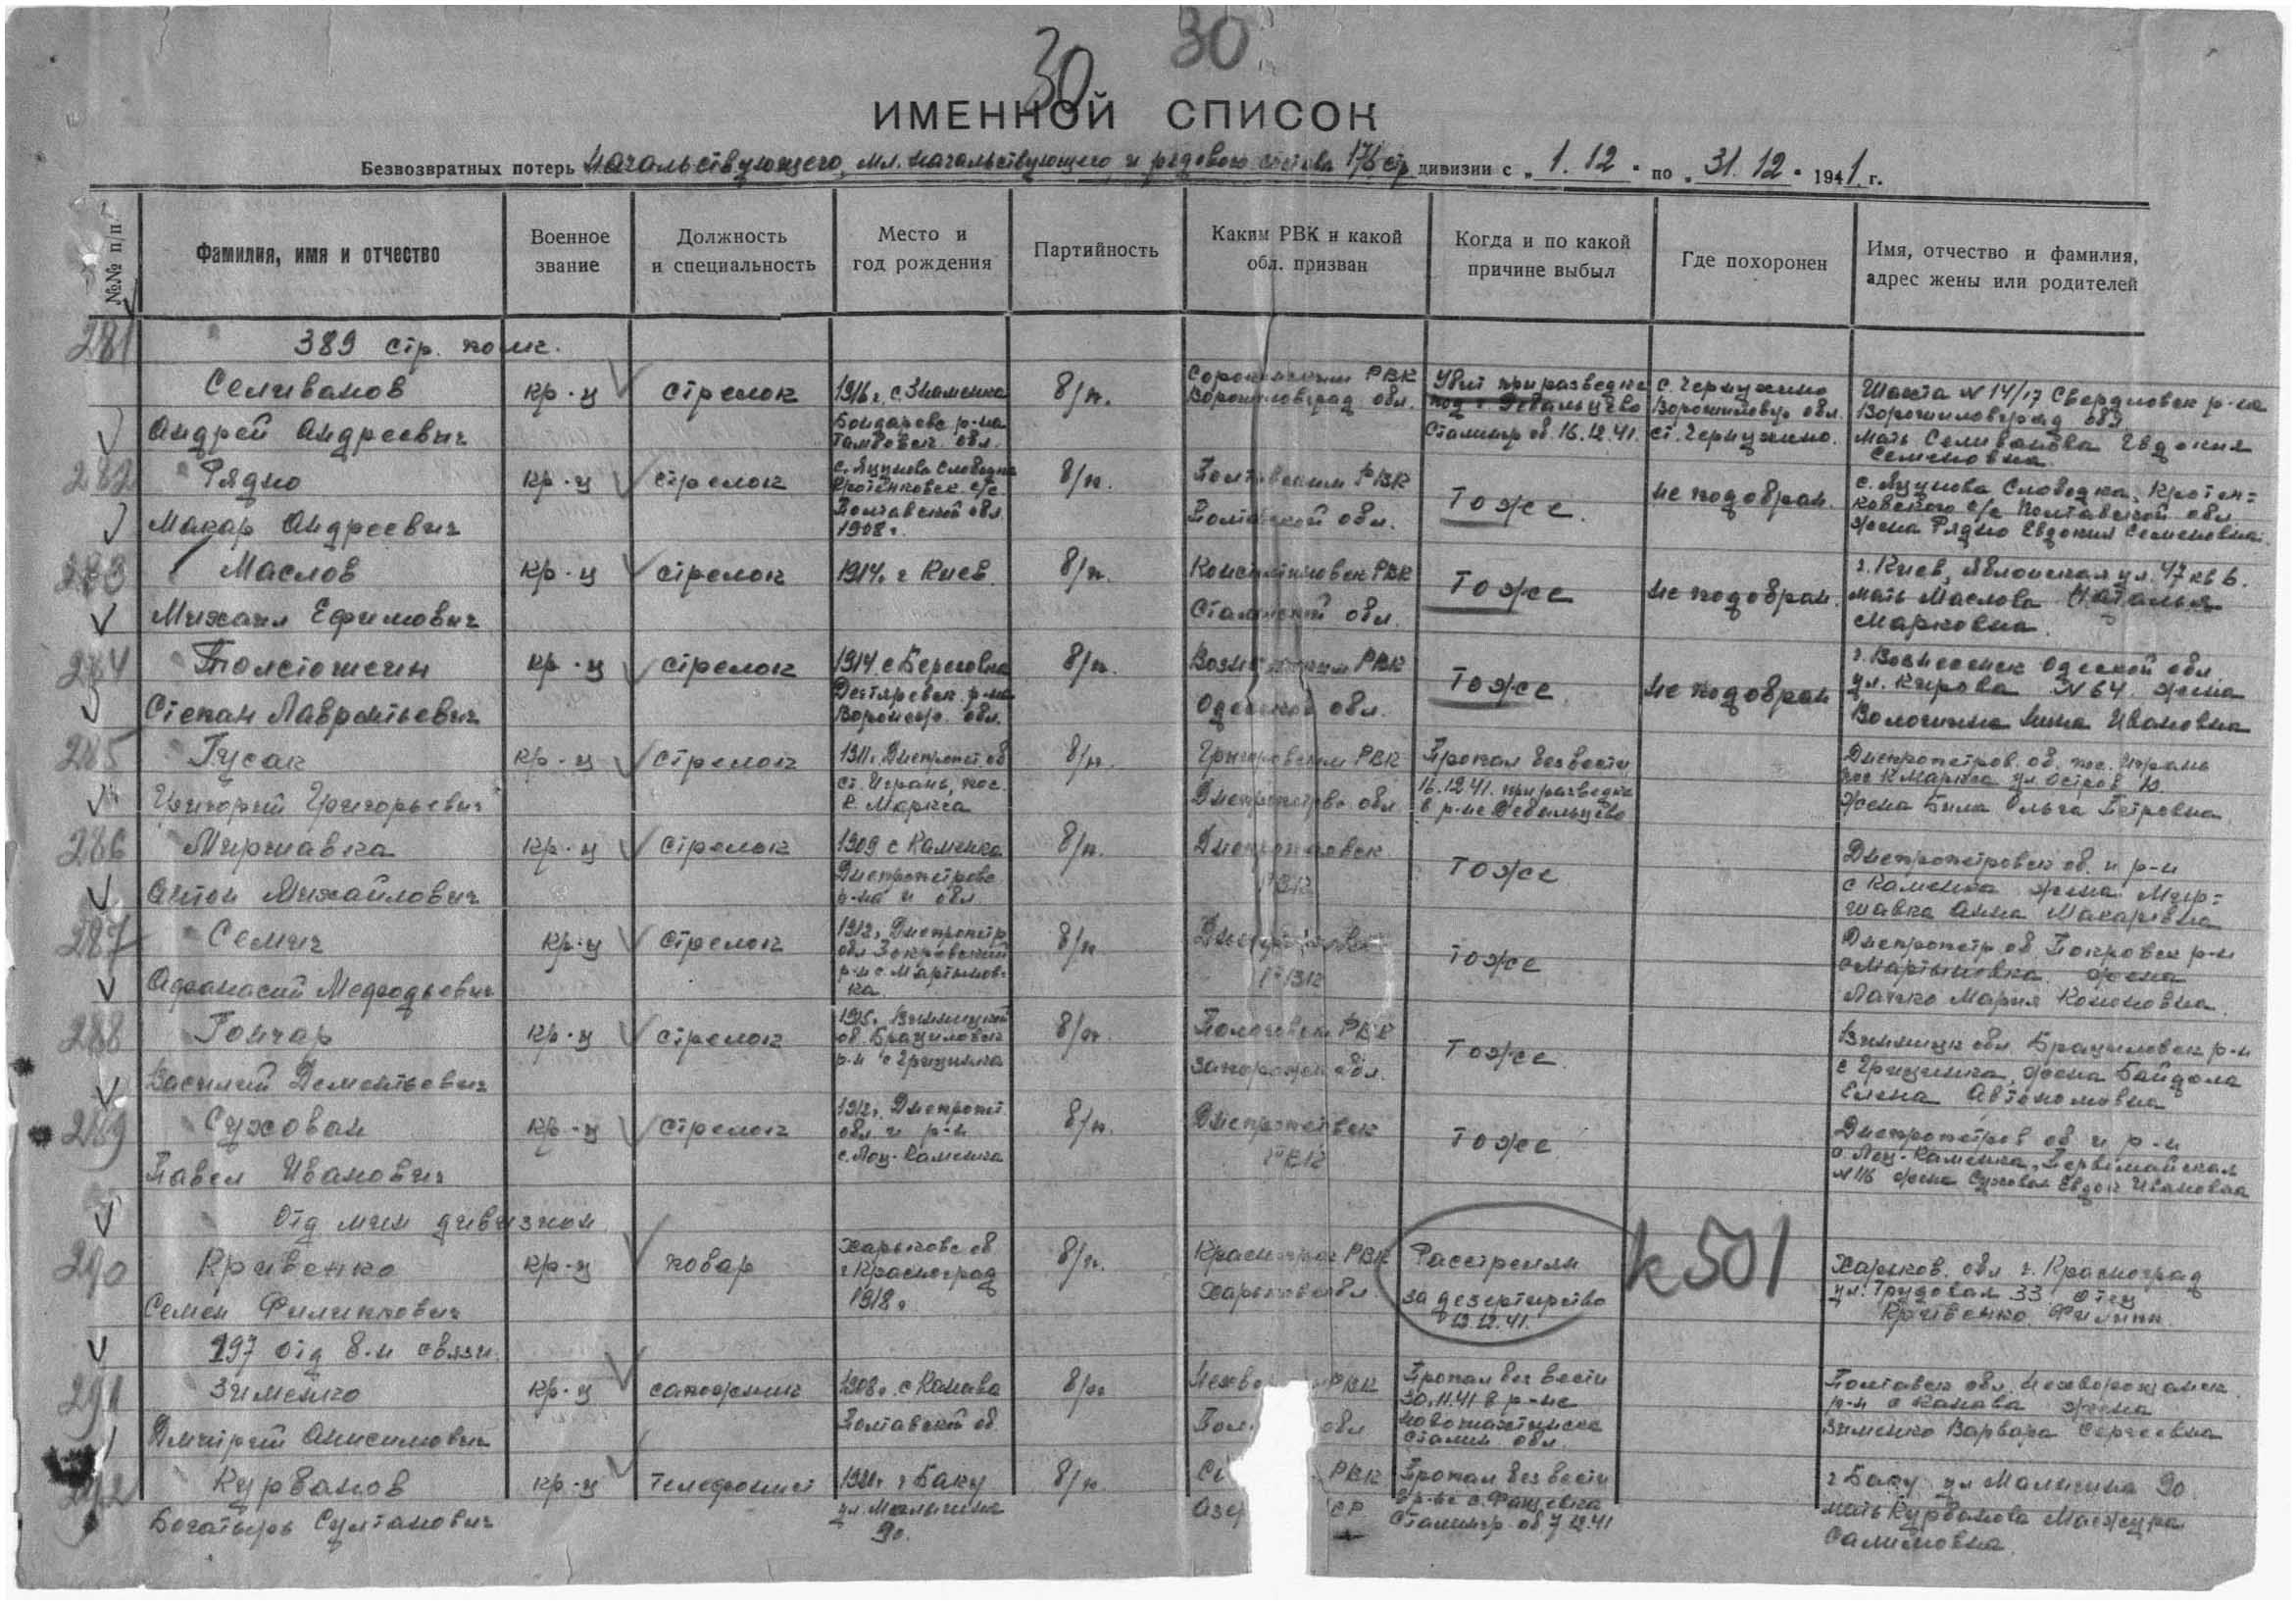 30 30
ИМЕННОЙ СПИСОК
Безвозвратных потерь начальствующего, мл. начальствующего и рядового состава 176 стр дивизии с „1.12" по „31.12" 1941 г.
№№ п/п
Фамилия, имя и отчество
Военное звание
Должность и специальность
Место и год рождения
Партийность
Каким РВК и какой обл. призван
Когда и по какой причине выбыл
Где похоронен
Имя, отчество и фамилия, адрес жены или родителей
389 стр. полк.
281
Селиванов
Андрей Андреевич
кр-ц
стрелок
1916 г. с. Знаменка
Бондарев р-на
Тамбовск. обл.
б/п.
Сорокинским РВК
Ворошиловград обл.
Убит при разведке
под г. Дебальцево
Сталингр об. 16.12.41.
с. Чернухино
Ворошиловгр обл.
ст. Чернухино.
Шахта № 14/17 Свердловск р-на
Ворошиловград обл
мать Селиванова Евдокия
Семеновна
282
Рядно
Макар Андреевич
кр-ц
стрелок
с. Яцунова Слободка
Кротенковск. с/с
Полтавской обл.
1908 г.
б/п.
Полтавским РВК
Полтавской обл.
Тоже.
не подобран.
с. Яцунова Слободка, Кротен=
ковского с/с Полтавской обл
жена Рядно Евдокия Семеновна.
283
Маслов
Михаил Ефимович
кр-ц
стрелок
1914 г. г Киев.
б/п.
Константиновск РВК
Сталинской обл.
Тоже
не подобран.
г. Киев, Яблонская ул. 47 кв 6.
мать Маслова Наталья
Марковна.
284
Толстошеин
Степан Лаврентьевич
кр-ц
стрелок
1914 с Береговка
Дегтяревск. р-на
Воронеж. обл.
б/п.
РВК
Одесской обл.
Тоже.
не подобран
г. Вознесенск Одесской обл
ул. Кирова № 64. жена
Волочнина Анна Ивановна
285
Гусак
Григорий Григорьевич
кр-ц
стрелок
1911 г. Днепропет. об
ст. Игрень, пос.
К. Маркса
б/п.
РВК
Днепропетров. обл.
Пропал без вести
16.12.41. при разведке
в р-не Дебальцево
Днепропетров. об. пос. Игрень
пос К Маркса ул Остров 10
жена Била Ольга Петровна
286
Миршавка
Антон Михайлович
кр-ц
стрелок
1909 с Каменка
Днепропетровс.
р-на и обл.
б/п.
Днепропетровск.
РВК
Тоже
Днепропетровск об. и р-н
с Каменка жена Мир=
шавка Анна Макаровна
287
Семич
Афанасий Мефодьевич
кр-ц
стрелок
1912 г. Днепропетр
обл Покровский
р-н с. Мартынов-
ка.
б/п
РВК
Тоже
Днепропетр. об Покровск р-н
с Мартыновка. жена
Лачко Мария Кононовна.
288
Гончар
Василий Дементьевич
кр-ц
стрелок
1915 г. Винницкой
об. Брацловск
р-н с Грицинка
б/п.
Пологовск РВК
Запорожск обл.
Тоже.
Винницк обл. Брацловск р-н
с Грицинка, жена Байдола
Елена Автономовна
289
Сухован
Павел Иванович
кр-ц
стрелок
1912 г. Днепропет.
обл. и р-н
с. Лоц-Каменка
б/п.
Днепропетровск
РВК
Тоже.
Днепропетров об и р-н
с. Лоц-Каменка, Первомайская
№ 116 жена Суховая Евдок Ивановна
Отд мин дивизион
290
Кривенко
Семен Филиппович
кр-ц
повар
Харьковс об
г Красноград
1918 г.
б/п.
Красноград РВК
Харьков обл.
Расстрелян
за дезертирство
13.12.41.
к 501
Харьков. обл г. Красноград
ул. Трудовая 33 отец
Кривенко Филипп.
297 отд б-н связи.
291
Зименко
Дмитрий Анисимович
кр-ц
сапожник
1908 г. с Канава
Полтавской об.
б/п
РВК
обл
Пропал без вести
30.11.41 в р-не
Сталин. обл.
Полтавск обл.
р-н с Канава жена
Зименко Варвара Сергеевна
292
Курбанов
Богатырь Султанович
кр-ц
телефонист
г Баку
ул. Малыгина
90.
б/п
РВК
Пропал без вести
в р-не с. Фащевка
7.12.41
г Баку ул Малыгина 90
мать Курбанова
Салимовна.